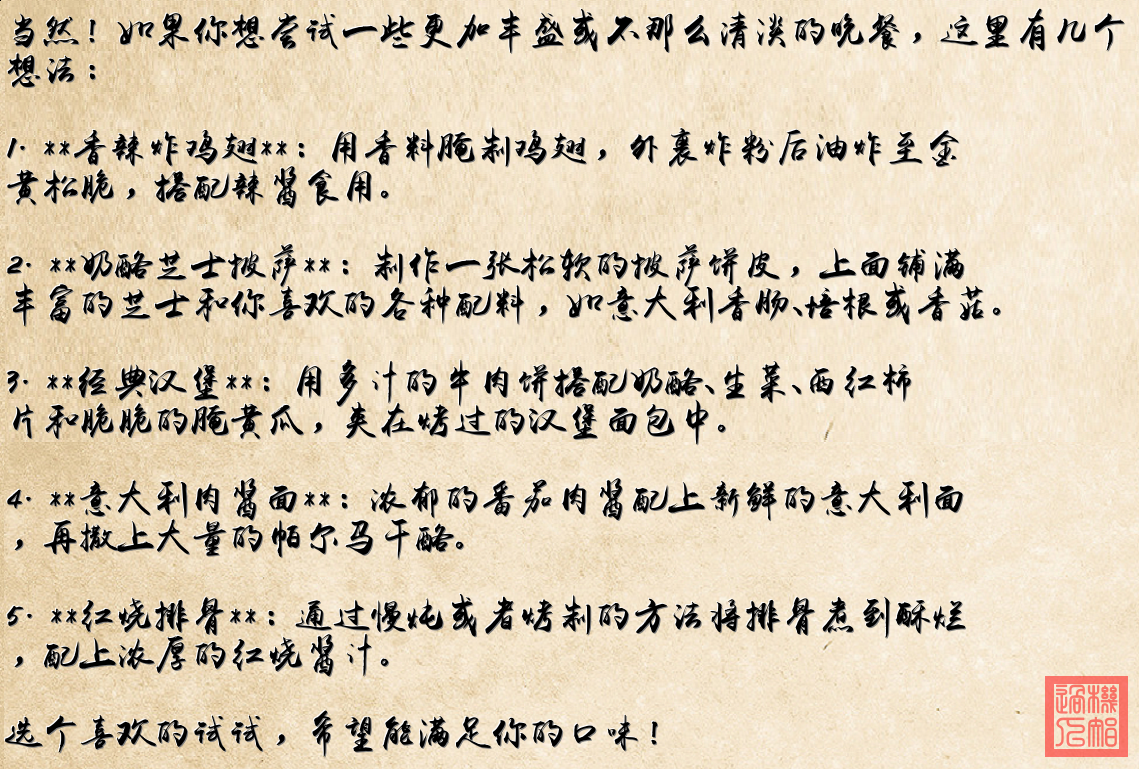 当然！如果你想尝试一些更加丰盛或不那么清淡的晚餐，这里有几个
想法：
1. **香辣炸鸡翅**：用香料腌制鸡翅，外裹炸粉后油炸至金
黄松脆，搭配辣酱食用。
2. **奶酪芝士披萨**：制作一张松软的披萨饼皮，上面铺满
丰富的芝士和你喜欢的各种配料，如意大利香肠、培根或香菇。
3. **经典汉堡**：用多汁的牛肉饼搭配奶酪、生菜、西红柿
片和脆脆的腌黄瓜，夹在烤过的汉堡面包中。
4. **意大利肉酱面**：浓郁的番茄肉酱配上新鲜的意大利面
，再撒上大量的帕尔马干酪。
5. **红烧排骨**：通过慢炖或者烤制的方法将排骨煮到酥烂
，配上浓厚的红烧酱汁。
选个喜欢的试试，希望能满足你的口味！